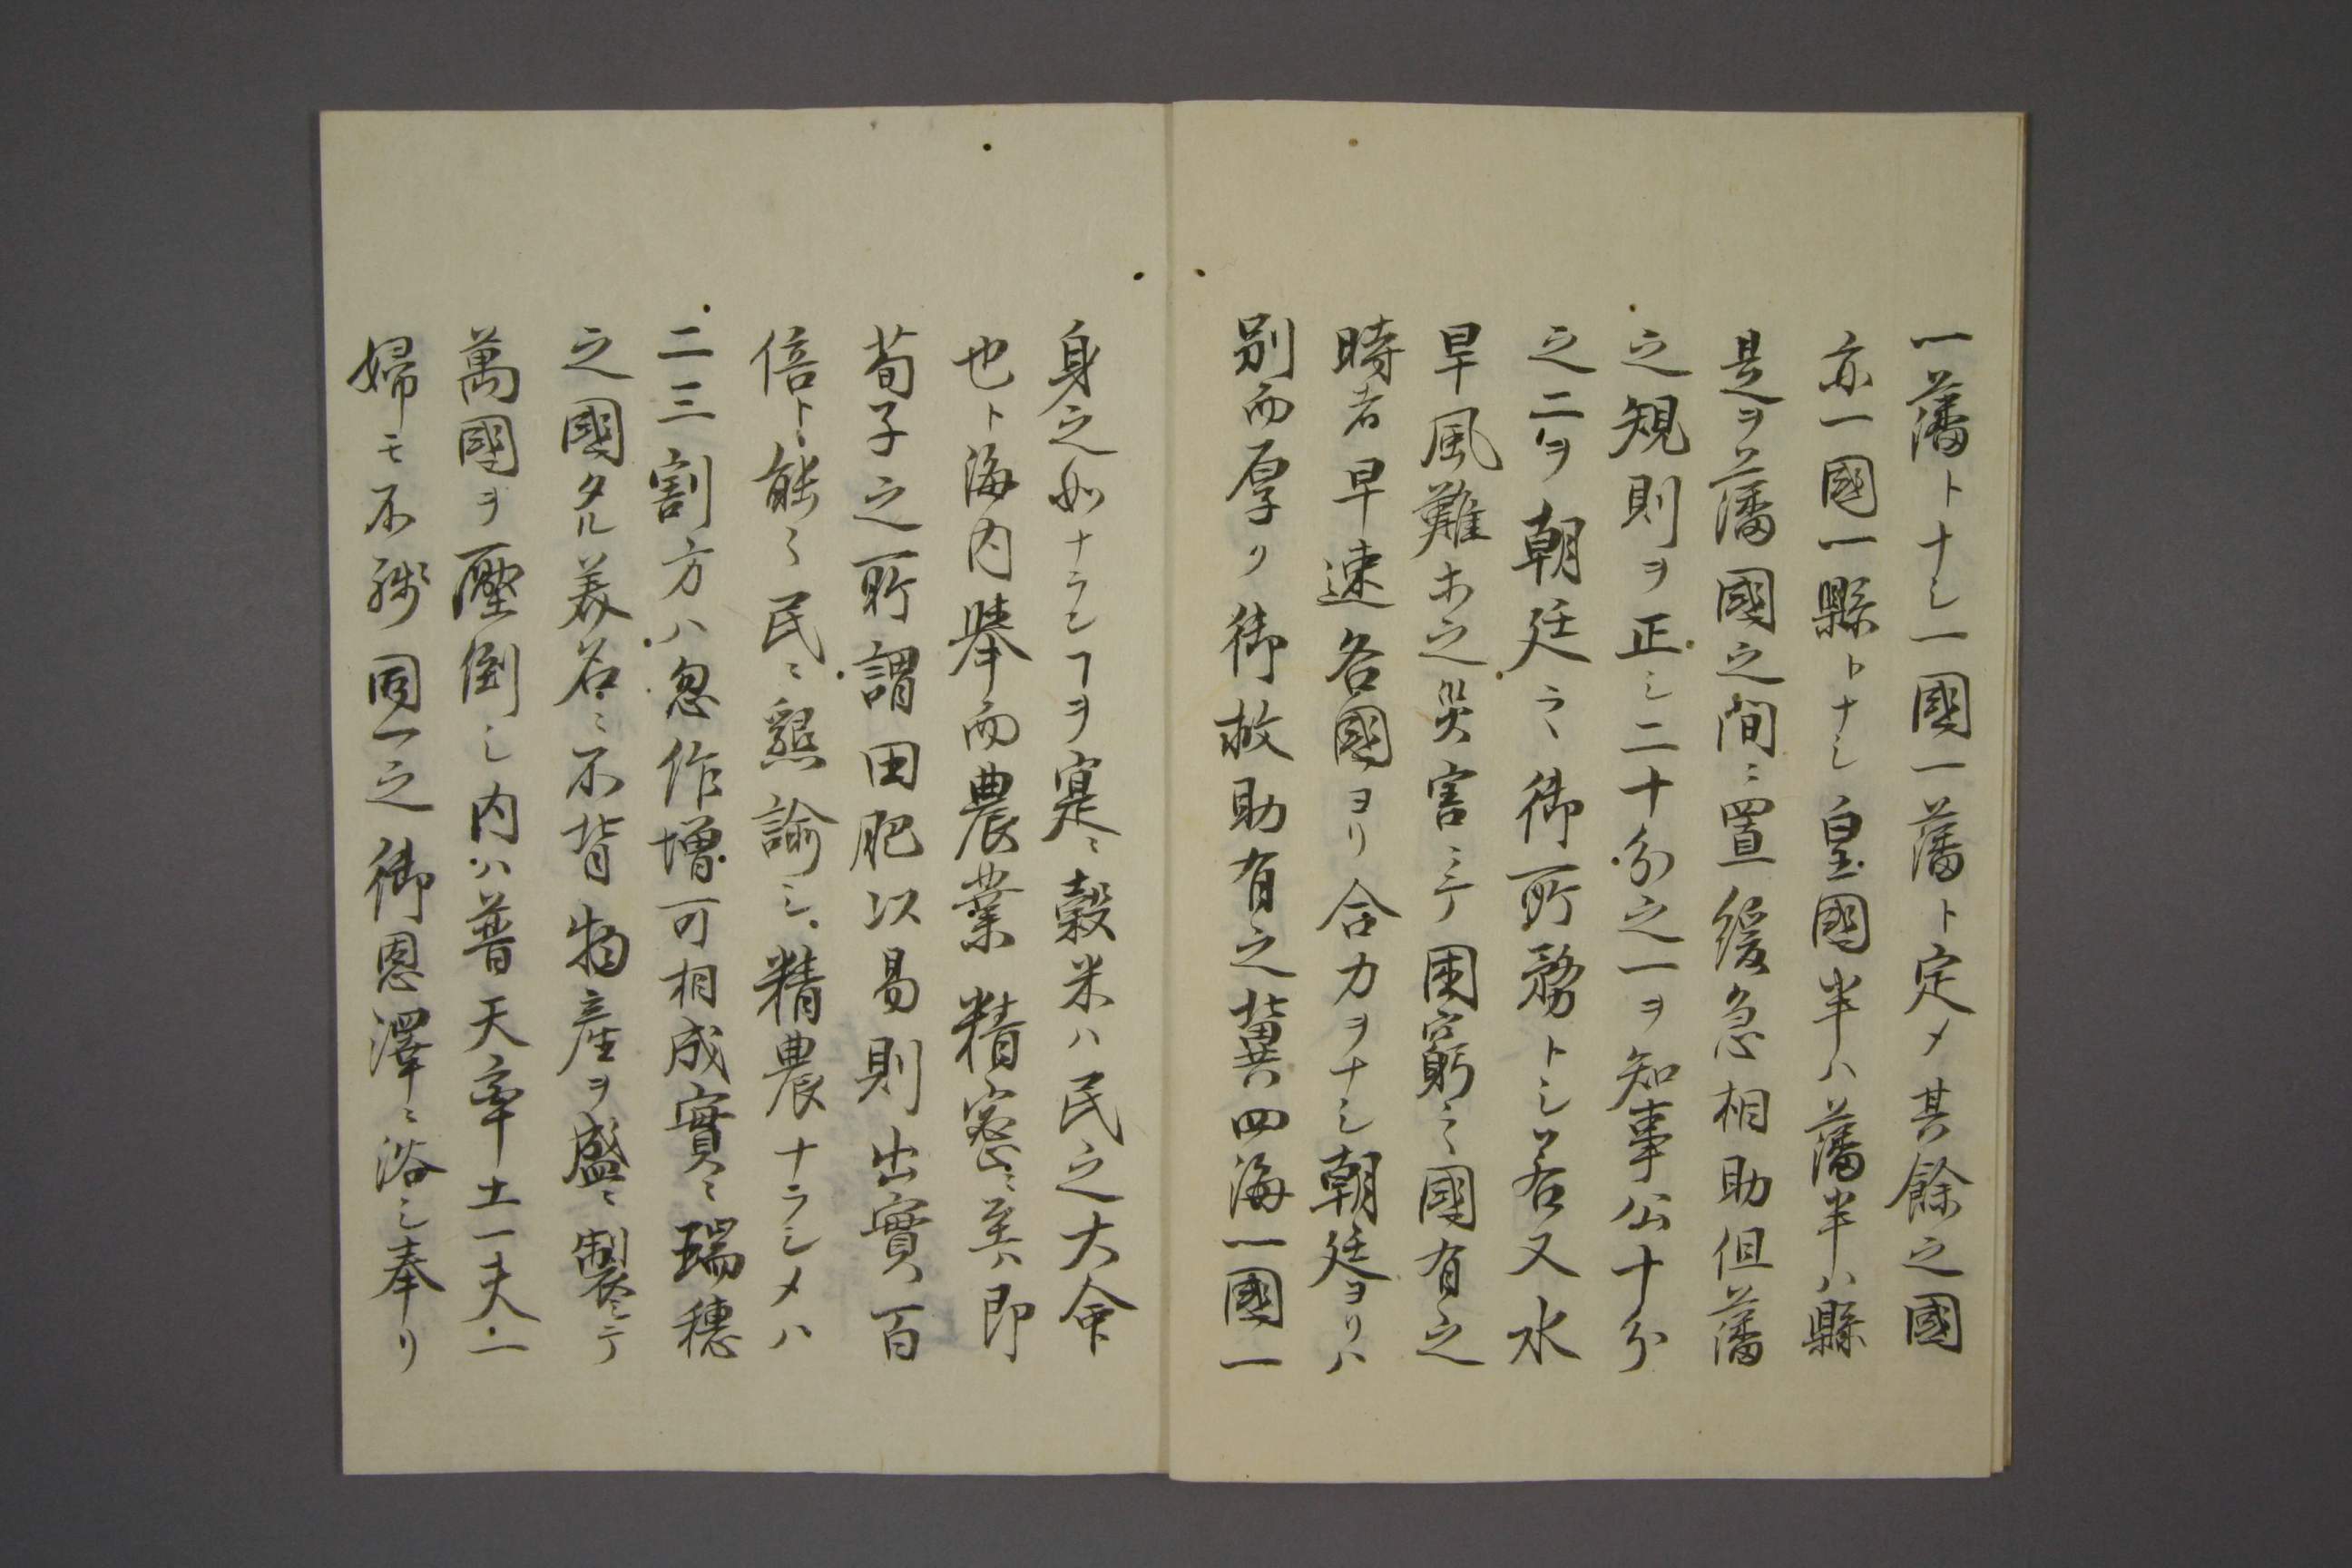 一藩トナシ一國一藩ト定メ其餘之國
亦一國一縣トナシ皇國半ハ藩半ハ縣
是ヲ藩國之間ニ置緩急相助但藩
之規則ヲ正シ二十分之一ヲ知事公十分
之二ヲ朝廷之御所務トシ若又水
旱風難ホ之災害ニテ困窮之國有之
時者早速各國ヨリ合力ヲナシ朝廷ヨリハ
別而厚ク御救助有之冀四海一國一
身之如ナラシヿヲ寔ニ穀米ハ民之大命
也ト海内擧而農業精密ニ至ハ即
荀子之所謂田肥以易則出實百
倍ト能々民ニ懇諭シ精農ナラシメハ
二三割方ハ忽作増可相成實ニ瑞穗
之國タル美名ニ不背物産ヲ盛ニ製シテ
萬國ヲ壓倒シ内ハ普天率土一夫一
婦モ不殘同一之御恩澤ニ浴シ奉リ